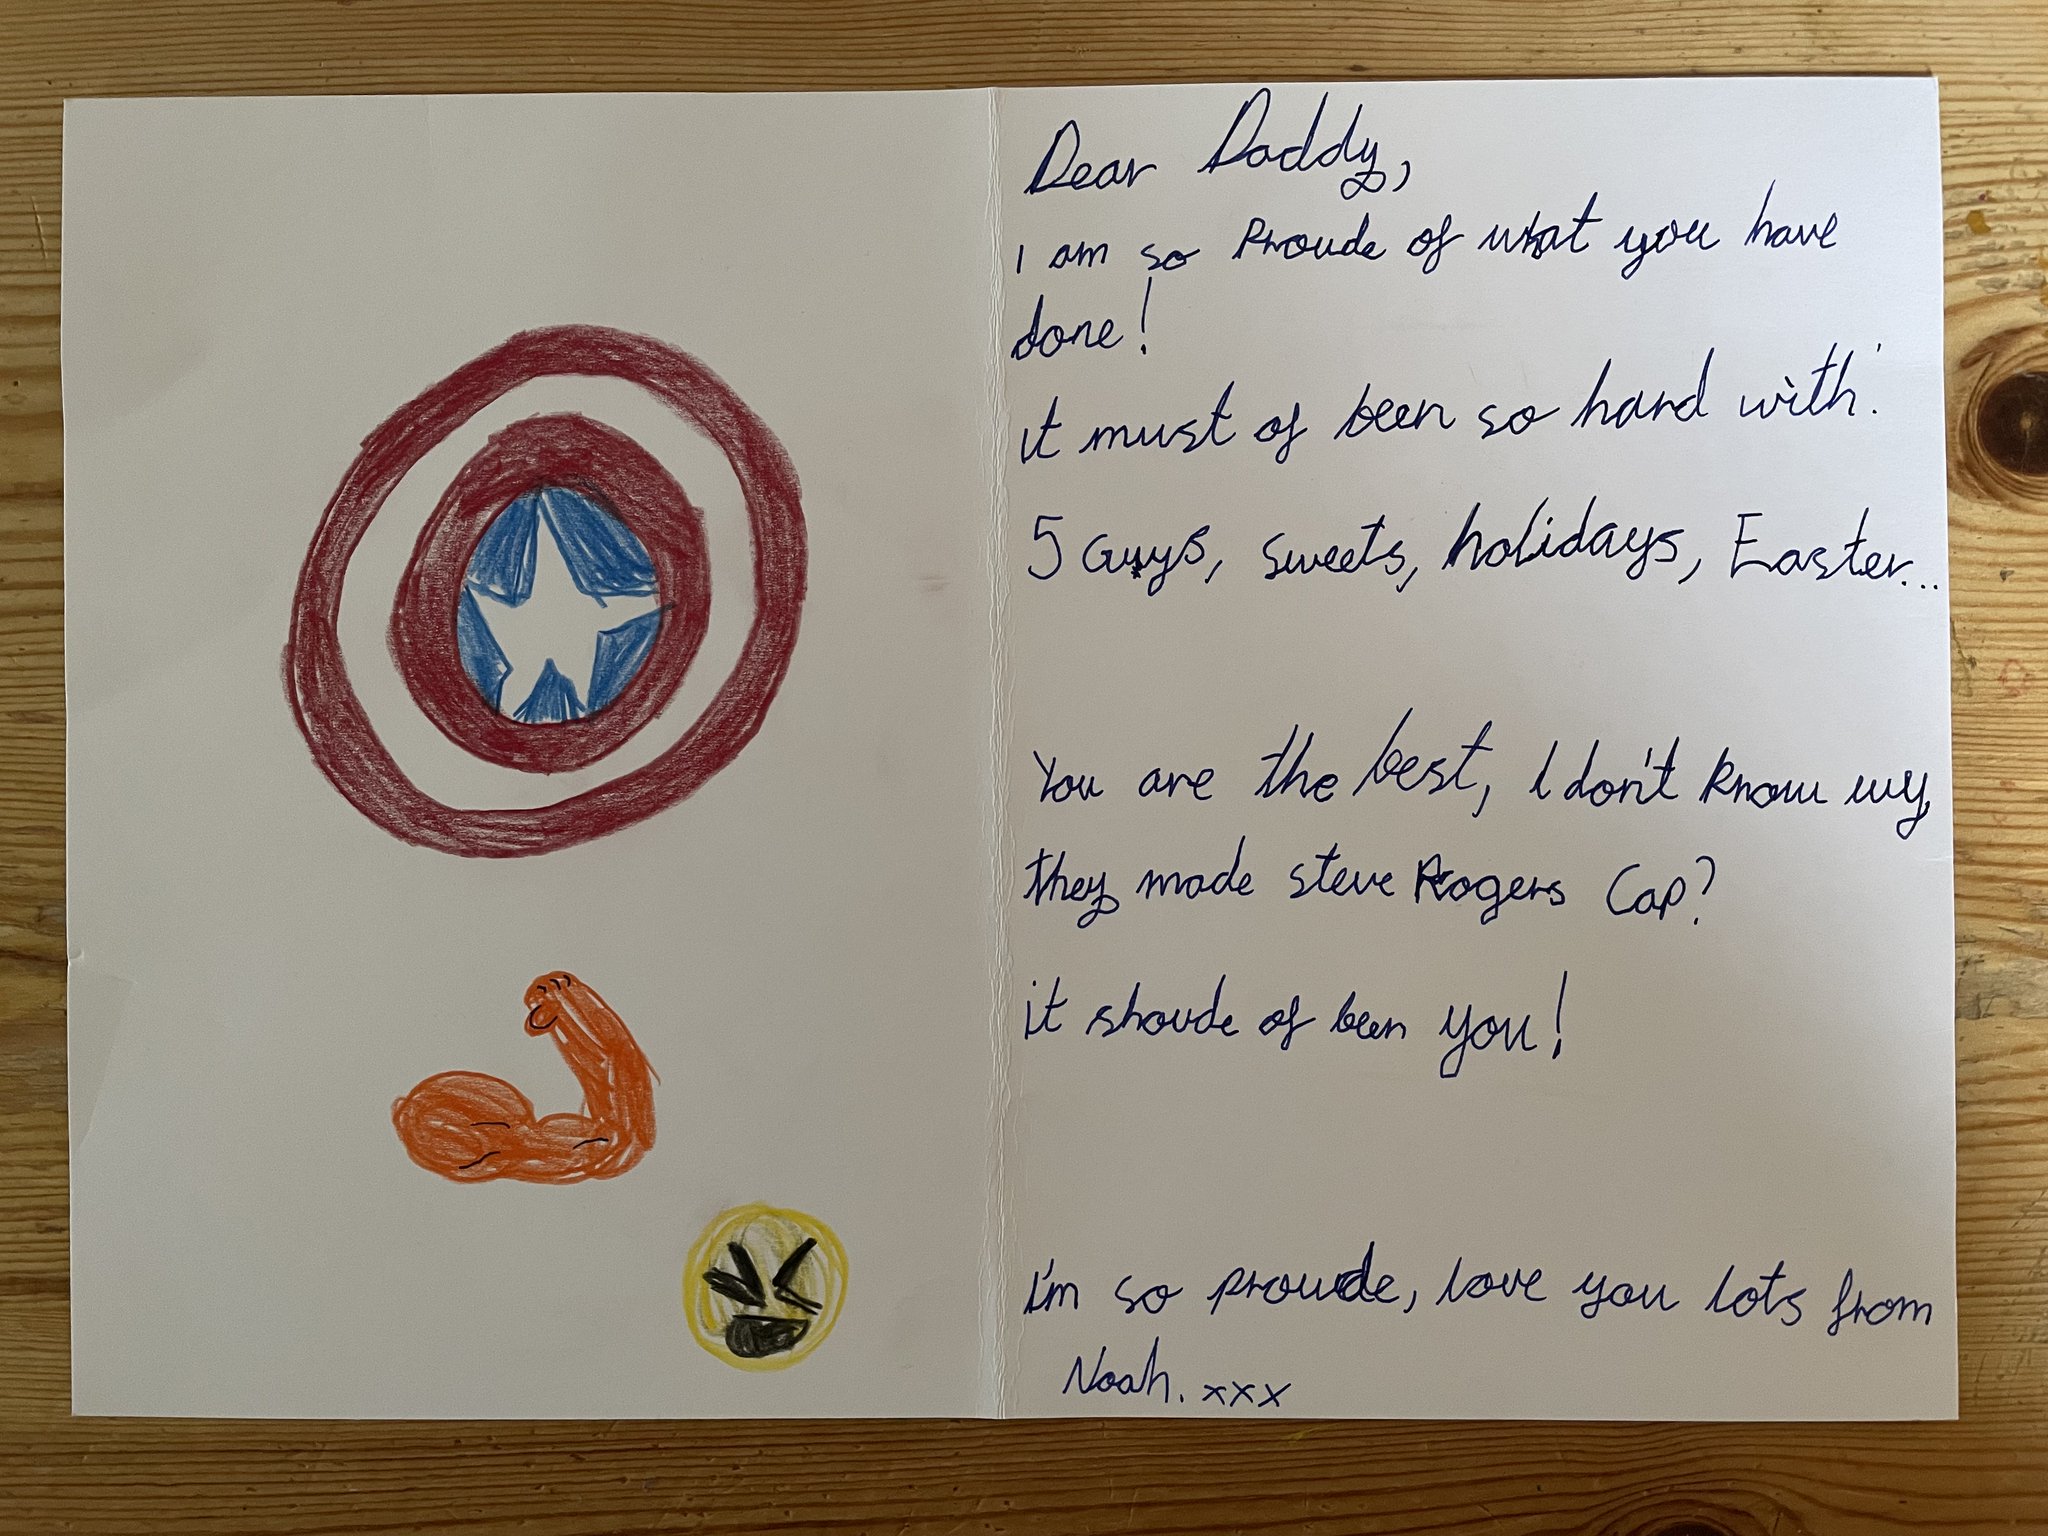 Dear Daddy,
I am so Proude of what you have
done!
it must of been so hard with:
5 Guys, Sweets, holidays, Easter...
You are the best, I don't know wy
they made steve Rogers Cap?
it shoude of been you!
I'm so proude, love you lots from
Noah. xxx